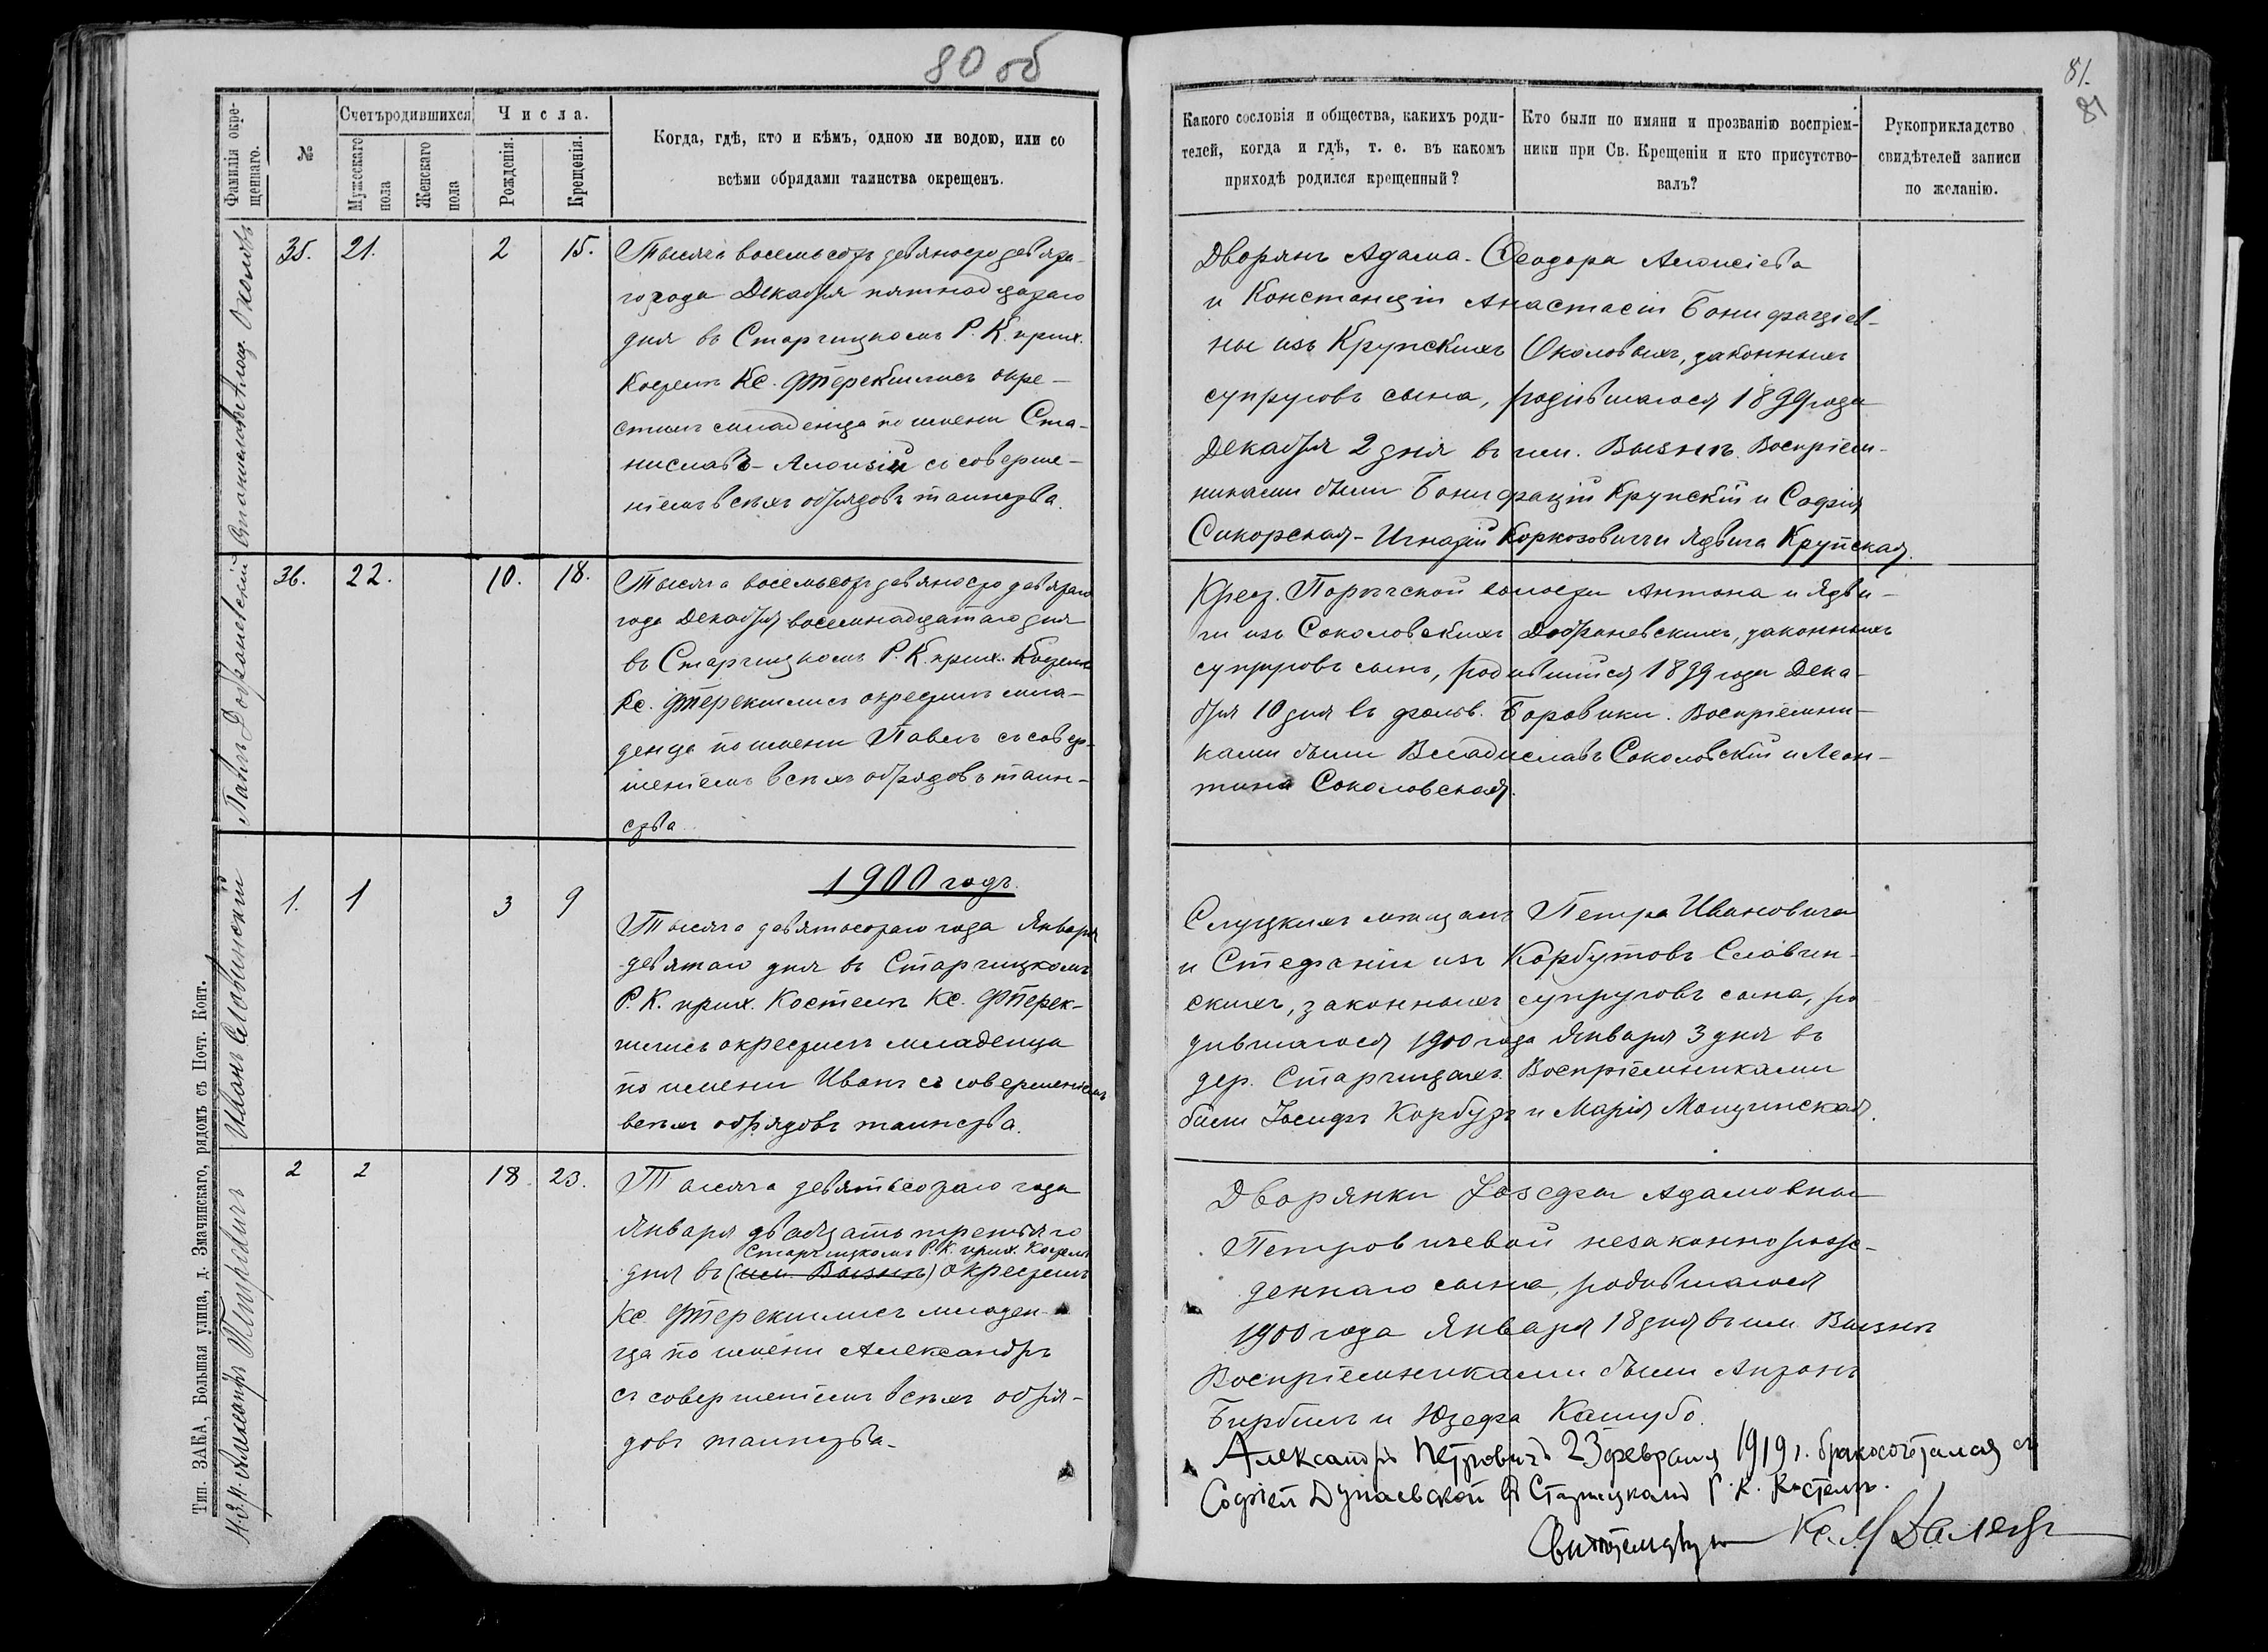 80 об
Фамилія окре-
щеннаго.
№
Счетъ родившихся
Мужескаго
пола
Женскаго
пола
Числа.
Рожденія.
Крещенія.
Когда, гдѣ, кто и кѣмъ, одною ли водою, или со
всѣми обрядами таинства окрещенъ.
Околовъ
35. 21. 2 15.
Тысяча восемьсотъ девяносто девята-
го года Декабря пятнадцатаго
дня въ Старчицкомъ Р. К. прих.
Костелѣ Кс. Фтерекшисъ окре-
стилъ младенца по имени Ста-
ниславъ-Алоизій съ соверше-
ніемъ всѣхъ обрядовъ таинства.
Павелъ Добраневскій
36. 22. 10. 18.
Тысяча восемьсотъ девяносто девятаго
года Декабря восемнадцатаго дня
въ Старчицкомъ Р. К. прих. Костелѣ
Кс. окрестилъ мла-
денца по имени Павелъ съ совер-
шеніемъ всѣхъ обрядовъ таин-
ства.
1900 годъ.
Иванъ Славинскій
1. 1 3 9
Тысяча девятьсотаго года Января
девятаго дня въ Старчицкомъ
Р. К. прих. Костелѣ Кс.
окрестилъ младенца
по имени Иванъ съ совершеніемъ
всѣхъ обрядовъ таинства.
Н.з.р. Александръ Петровичъ
2 2 18 23.
Тысяча девятьсотаго года
Января двадцать третьяго
Старчицкомъ Р. К. прих. Костелѣ
дня въ (им. Вызнѣ) окрестилъ
Кс. младен-
ца по имени Александръ
съ совершеніемъ всѣхъ обря-
довъ таинства.
Тип. ЗАКА, Большая улица, д. Змачинскаго, рядомъ съ Почт. Конт.
81.
81
Какого сословія и общества, какихъ роди-
телей, когда и гдѣ, т. е. въ какомъ
приходѣ родился крещенный?
Кто были по имяни и прозванію воспріем-
ники при Св. Крещеніи и кто присутство-
валъ?
Рукоприкладство
свидѣтелей записи
по желанію.
Дворянъ Адама-Ѳеодора Алоисіева
и Констанціи Анастасіи Бонифаціев-
ны изъ Крупскихъ Околовыхъ, законныхъ
супруговъ сына, родившагося 1899 года
Декабря 2 дня въ им. Вызнѣ. Воспріем-
никами были Бонифацій Крупскій и Софія
Сикорская - Игнатій Коркозовичъ и Ядвига Крупская.
Крест. Порѣчской волости Антона и Ядви-
ги изъ Соколовскихъ Добраневскихъ, законныхъ
супруговъ сынъ, родившійся 1899 года Дека-
бря 10 дня въ фольв. Боровики. Воспріемни-
ками были Владиславъ Соколовскій и Леон-
тина Соколовская.
Слуцкихъ мѣщанъ Петра Ивановича
и Стефаніи изъ Корбутовъ Славин-
скихъ, законныхъ супруговъ сына, ро
дившагося 1900 года Января 3 дня въ
дер. Старчицахъ. Воспріемниками
были Іосифъ Корбутъ и Марія Мощинская.
Дворянки Іозефы Адамовны
Петровичевой незаконнорож-
деннаго сына, родившагося
1900 года Января 18 дня въ им. Вызнѣ
Воспріемниками были Антонъ
Бирбилъ и Юзефа Кашубо.
Александръ Петровичъ 23 февраля 1919 г. бракосочетался съ
Софіей Дунаевской въ Старчицкомъ Р. К. Костелѣ.
Свидѣтельствую Кс. М